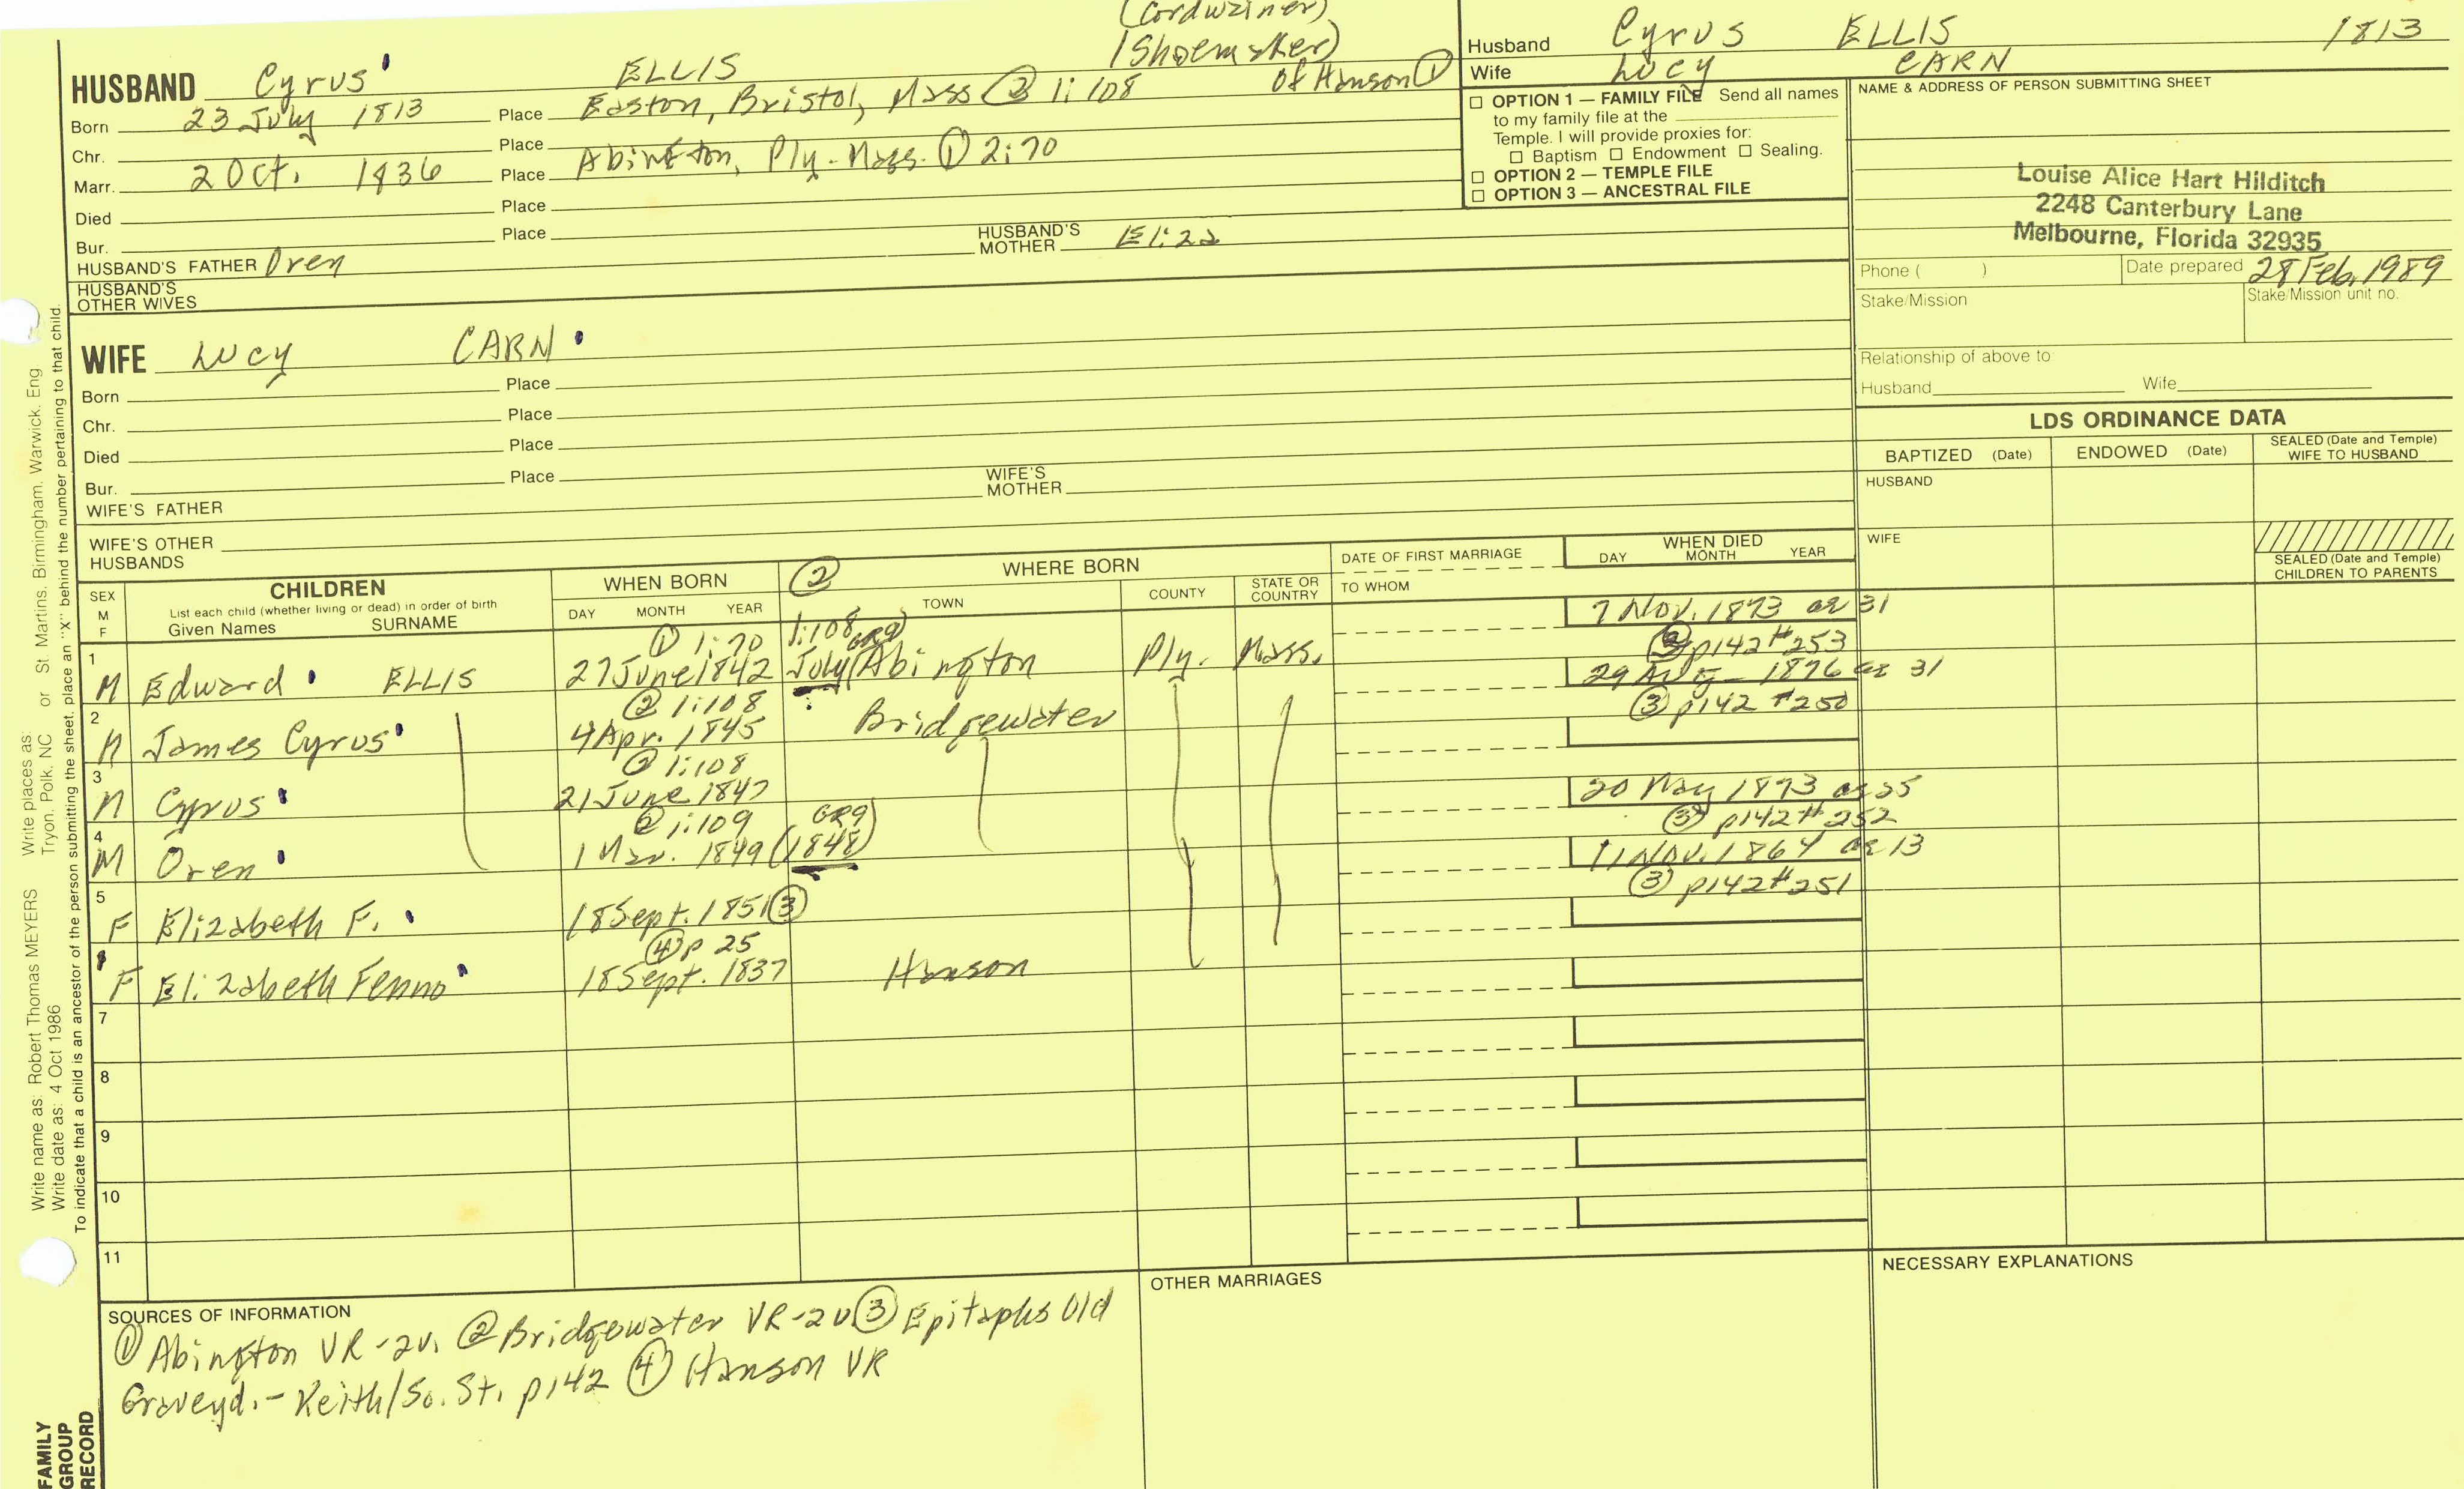 (Cordwainer)
(Shoemaker)
of Hanson ①
HUSBAND Cyrus ELLIS
Born 23 July 1813 Place Easton, Bristol, Mass ② 1:108
Chr. Place
Marr. 2 Oct. 1836 Place Abington, Ply. Mass. ① 2:70
Died Place
Bur. Place
HUSBAND'S FATHER Oren HUSBAND'S MOTHER Eliza
HUSBAND'S OTHER WIVES
WIFE Lucy CARN
Born Place
Chr. Place
Died Place
Bur. Place
WIFE'S FATHER WIFE'S MOTHER
WIFE'S OTHER HUSBANDS
Husband Cyrus ELLIS 1813
Wife Lucy CARN
☐ OPTION 1 — FAMILY FILE Send all names
to my family file at the
Temple. I will provide proxies for:
☐ Baptism ☐ Endowment ☐ Sealing.
☐ OPTION 2 — TEMPLE FILE
☐ OPTION 3 — ANCESTRAL FILE
NAME & ADDRESS OF PERSON SUBMITTING SHEET
Louise Alice Hart Hilditch
2248 Canterbury Lane
Melbourne, Florida 32935
Phone ( ) Date prepared 28 Feb. 1989
Stake/Mission Stake/Mission unit no.
Relationship of above to
Husband Wife
LDS ORDINANCE DATA
BAPTIZED (Date) ENDOWED (Date) SEALED (Date and Temple) WIFE TO HUSBAND
HUSBAND
WIFE
SEALED (Date and Temple)
CHILDREN TO PARENTS
SEX
M
F
CHILDREN
List each child (whether living or dead) in order of birth
Given Names SURNAME
WHEN BORN
DAY MONTH YEAR
② WHERE BORN
TOWN COUNTY STATE OR COUNTRY
DATE OF FIRST MARRIAGE
TO WHOM
WHEN DIED
DAY MONTH YEAR
① 1:70 1:108 GR9) 7 Nov. 1873 ae 31
1 M Edward ELLIS 27 June 1842 July (Abington Ply. Mass. ③ p142 #253
② 1:108 29 Aug 1876 ae 31
2 M James Cyrus 4 Apr. 1845 Bridgewater ③ p142 #250
② 1:108
3 M Cyrus 21 June 1847 20 May 1873 ae 25
② 1:109 GR9) ③ p142 #252
4 M Oren 1 Mar. 1849 (1848) 11 Nov. 1864 ae 13
③ p142 #251
5 F Elizabeth F. 18 Sept. 1851 ③
④ p 25
F Elizabeth Fenno 18 Sept. 1837 Hanson
7
8
9
10
11
SOURCES OF INFORMATION
① Abington VR-2v. ② Bridgewater VR-2v ③ Epitaphs Old
Graveyd.- Keith/So. St. p142 ④ Hanson VR
OTHER MARRIAGES
NECESSARY EXPLANATIONS
Write name as: Robert Thomas MEYERS Write places as: St. Martins, Birmingham, Warwick, Eng
Write date as: 4 Oct 1986 or Tryon, Polk, NC
To indicate that a child is an ancestor of the person submitting the sheet, place an "X" behind the number pertaining to that child.
FAMILY
GROUP
RECORD